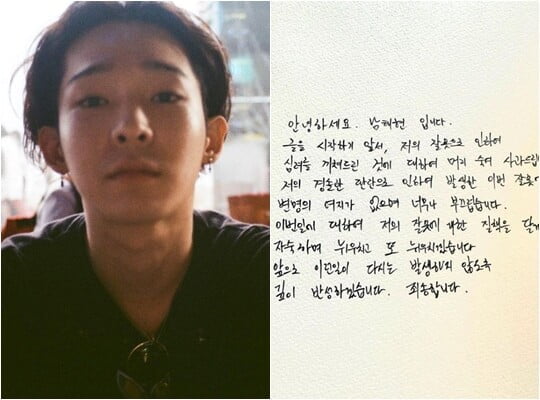 안녕하세요. 남태현 입니다.
글을 시작하기 앞서, 저의 잘못으로 인하여
심려를 끼쳐드린 것에 대하여 먼저 숙여 사과드립
저의 경솔한 판단으로 인하여 발생한 이번 잘못에
변명의 여지가 없으며 너무나 부끄럽습니다.
이번일에 대하여 저의 잘못에 대한 질책을 달게
자숙하며 뉘우치고 또 뉘우치겠습니다
앞으로 이런일이 다시는 발생하지 않도록
깊이 반성하겠습니다. 죄송합니다.